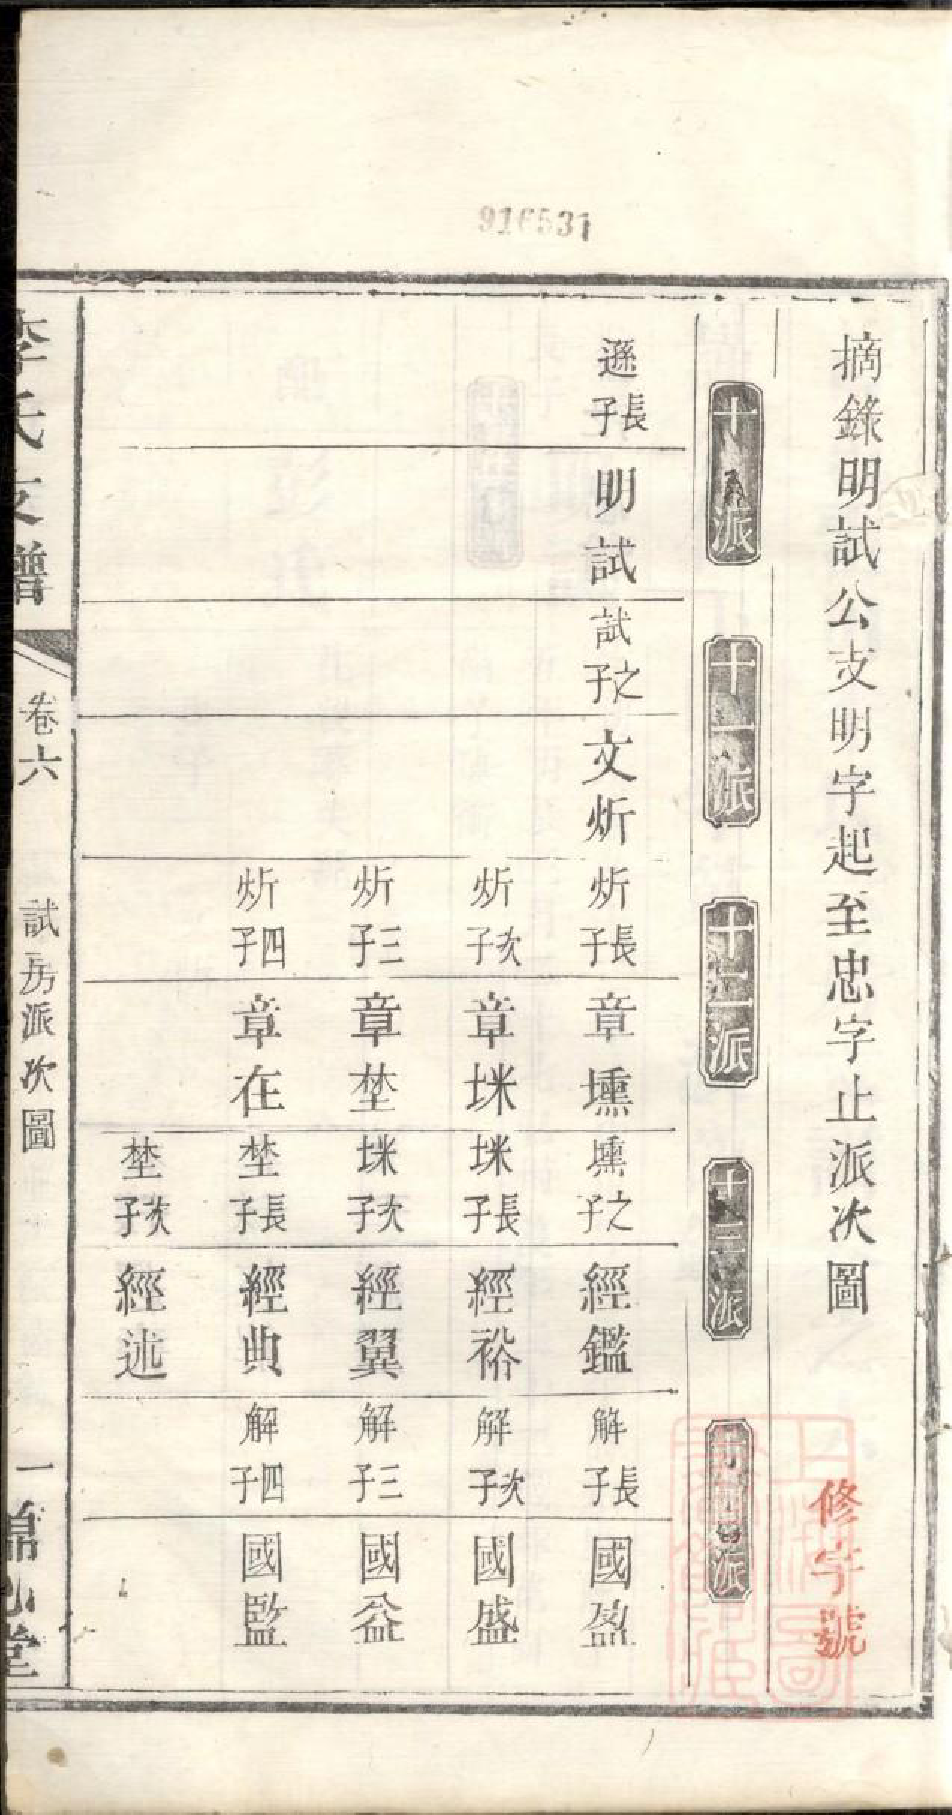 916531
摘錄明試公支明字起至忠字止派次圖
修字號
十派
十一派
十二派
十三派
十四派
遜長子
明試
試之子
文炘
炘長子
章壎
壎之子
經鑑
解長子
國盈
炘次子
章垙
垙長子
經裕
解次子
國盛
炘三子
章埜
垙次子
經翼
解三子
國益
炘四子
章在
埜長子
經典
解四子
國監
埜次子
經述
李氏支譜
卷六
試房派次圖
一